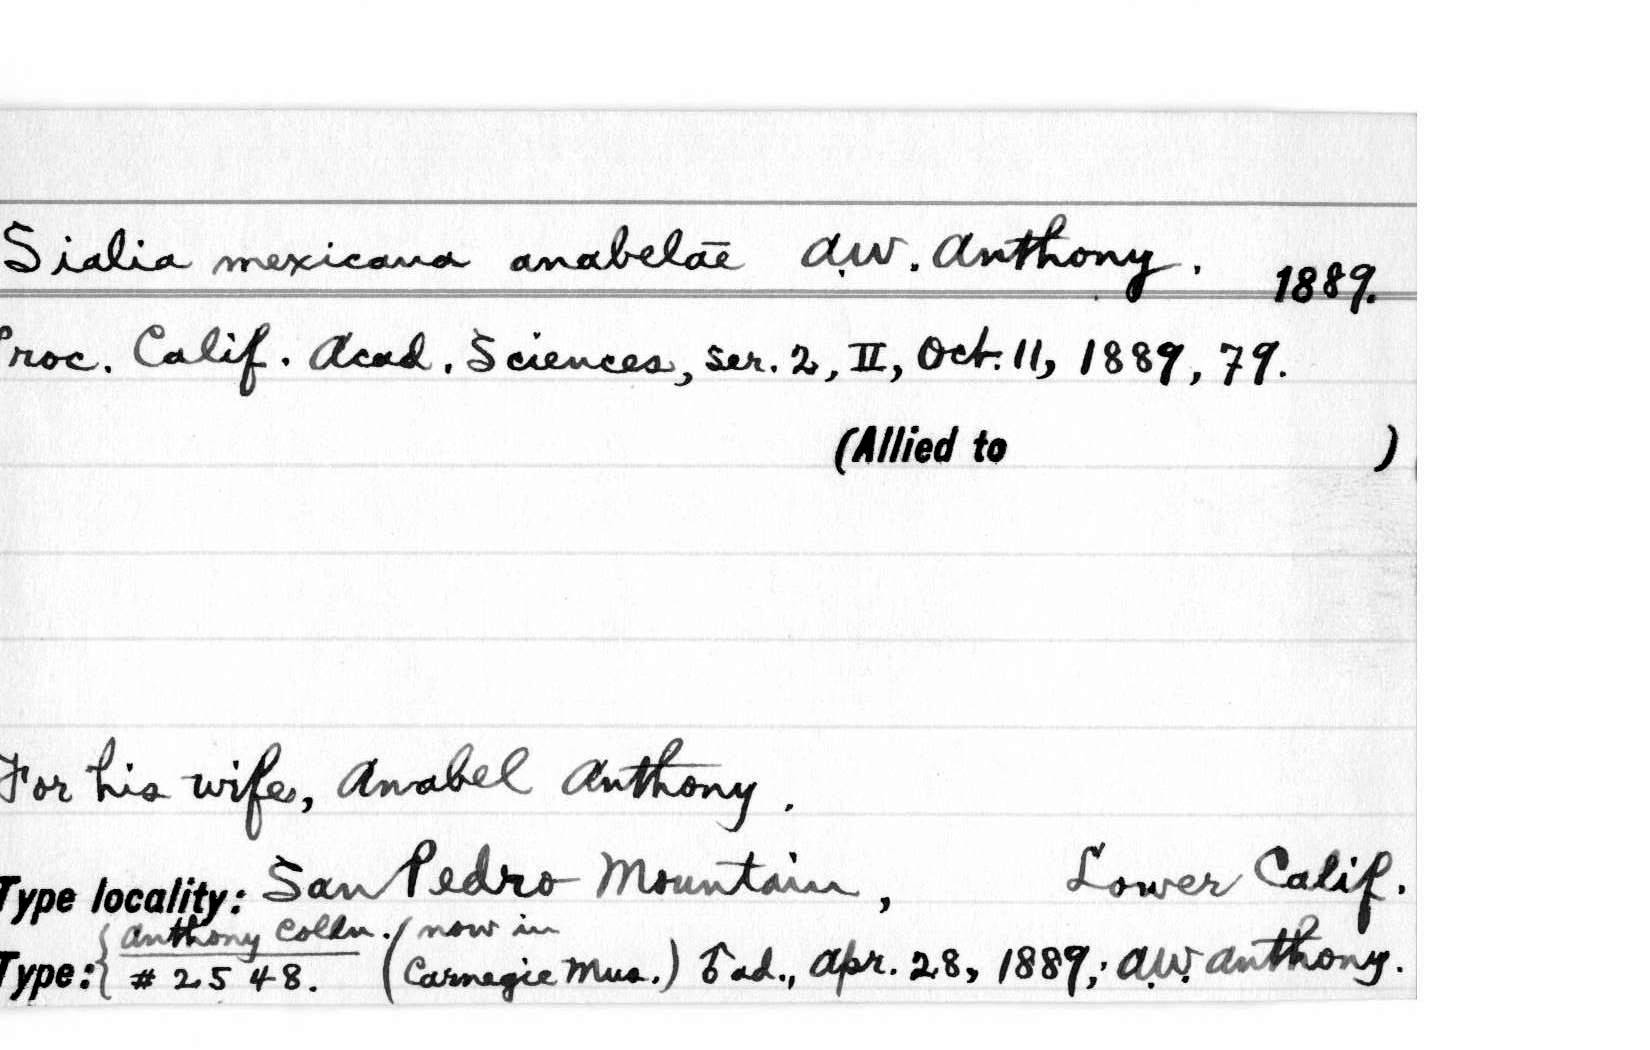 Sialia mexicana anabelae A.W. Anthony. 1889.
Proc. Calif. Acad. Sciences, ser. 2, II, Oct. 11, 1889, 79.
(Allied to )
For his wife, Anabel Anthony.
Type locality: San Pedro Mountain, Lower Calif.
Anthony Colln. (now in
Type: # 2548. Carnegie Mus.) ad., Apr. 28, 1889; A.W. Anthony.